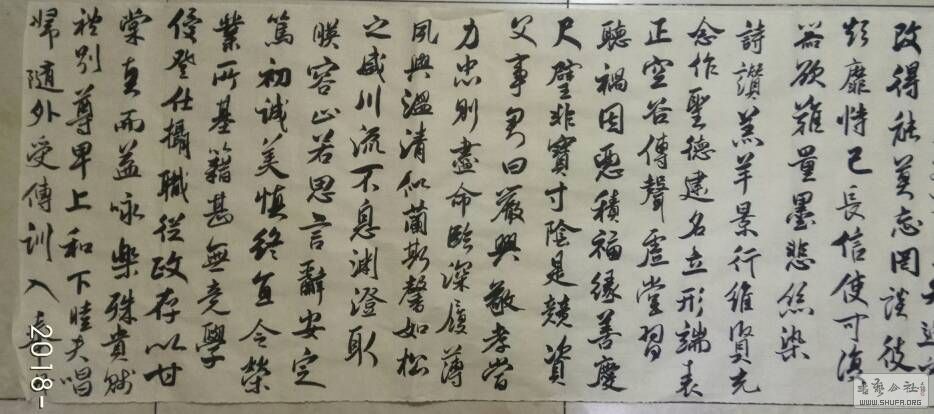 改得能莫忘罔談彼
短靡恃己長信使可復
器欲難量墨悲絲染
詩讚羔羊景行維賢克
念作聖德建名立形端表
正空谷傳聲虛堂習
聽禍因惡積福緣善慶
尺璧非寶寸陰是競資
父事君曰嚴與敬孝當
力忠則盡命臨深履薄
夙興溫清似蘭斯馨如松
之盛川流不息淵澄取
暎容止若思言辭安定
篤初誠美慎終宜令榮
業所基籍甚無竟學
優登仕攝職從政存以甘
棠去而益詠樂殊貴賤
禮別尊卑上和下睦夫唱
婦隨外受傅訓入奉
2018-
书艺公社
WWW.SHUFA.ORG